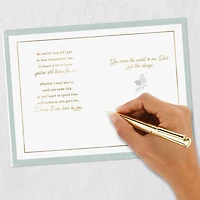 No matter how old I get
or how independent I am,
it means a lot to know
you're still there for me.
Whether I need advice
could use some help,
or just want to spend time
with someone who gets me...
I know I can turn to you.
You mean the world to me, Dad...
and this always.